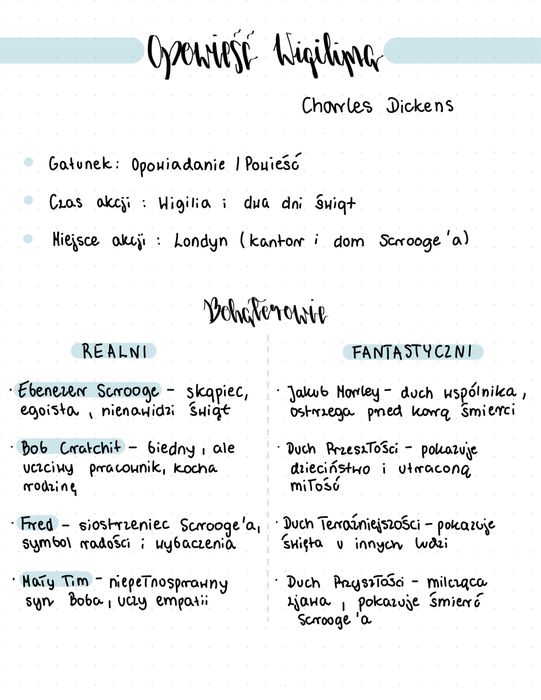 Opowieść Wigilijna
Charles Dickens
Gatunek: Opowiadanie / Powieść
Czas akcji : Wigilia i dwa dni świąt
Miejsce akcji : Londyn (kantor i dom Scrooge'a)
Bohaterowie
REALNI
· Ebenezer Scrooge – skąpiec,
egoista, nienawidzi świąt
· Bob Cratchit – biedny, ale
uczciwy pracownik, kocha
rodzinę
· Fred – siostrzeniec Scrooge'a,
symbol radości i wybaczenia
· Mały Tim – niepełnosprawny
syn Boba, uczy empatii
FANTASTYCZNI
· Jakub Marley – duch wspólnika,
ostrzega przed karą śmierci
· Duch Przeszłości – pokazuje
dzieciństwo i utraconą
miłość
· Duch Teraźniejszości – pokazuje
święta u innych ludzi
· Duch Przyszłości – milcząca
zjawa, pokazuje śmierć
Scrooge'a